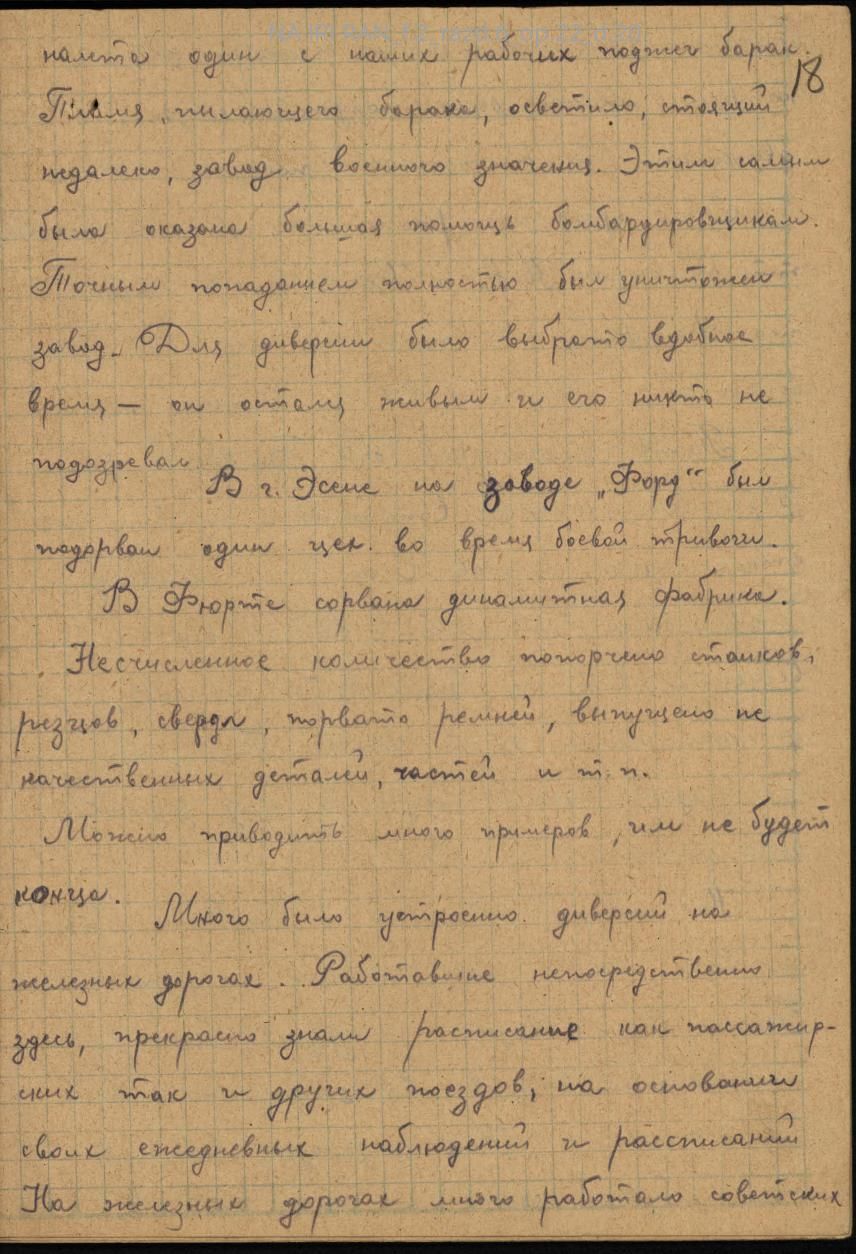 налета один с наших рабочих поджег барак.
18
Пламя, пылающего барака, осветило, стоящий
недалеко, завод военного значения. Этим самым
была оказана большая помощь бомбардировщикам.
Точным попаданием полностью был уничтожен
завод. Для диверсии было выбрато вдобное
время — он осталя живым и его никто не
подозревал
В г. Эсене на заводе „Форд“ был
подорван один цех во время боевой тривоги.
В Фюрте сорвана динамитная фабрика.
Несчисленное количество попорчено станков,
резцов, свердл, порвато ремней, выпущено не
качественных деталей, частей и т.п.
Можно приводить много примеров, им не будет
конца.
Много было устроено диверсий на
железных дорогах. Работавшие непосредственно
здесь, прекрасно знали расписание как пассажир-
ских так и других поездов, на основании
своих ежедневных наблюдений и рассписаний
На железных дорогах много работало советских